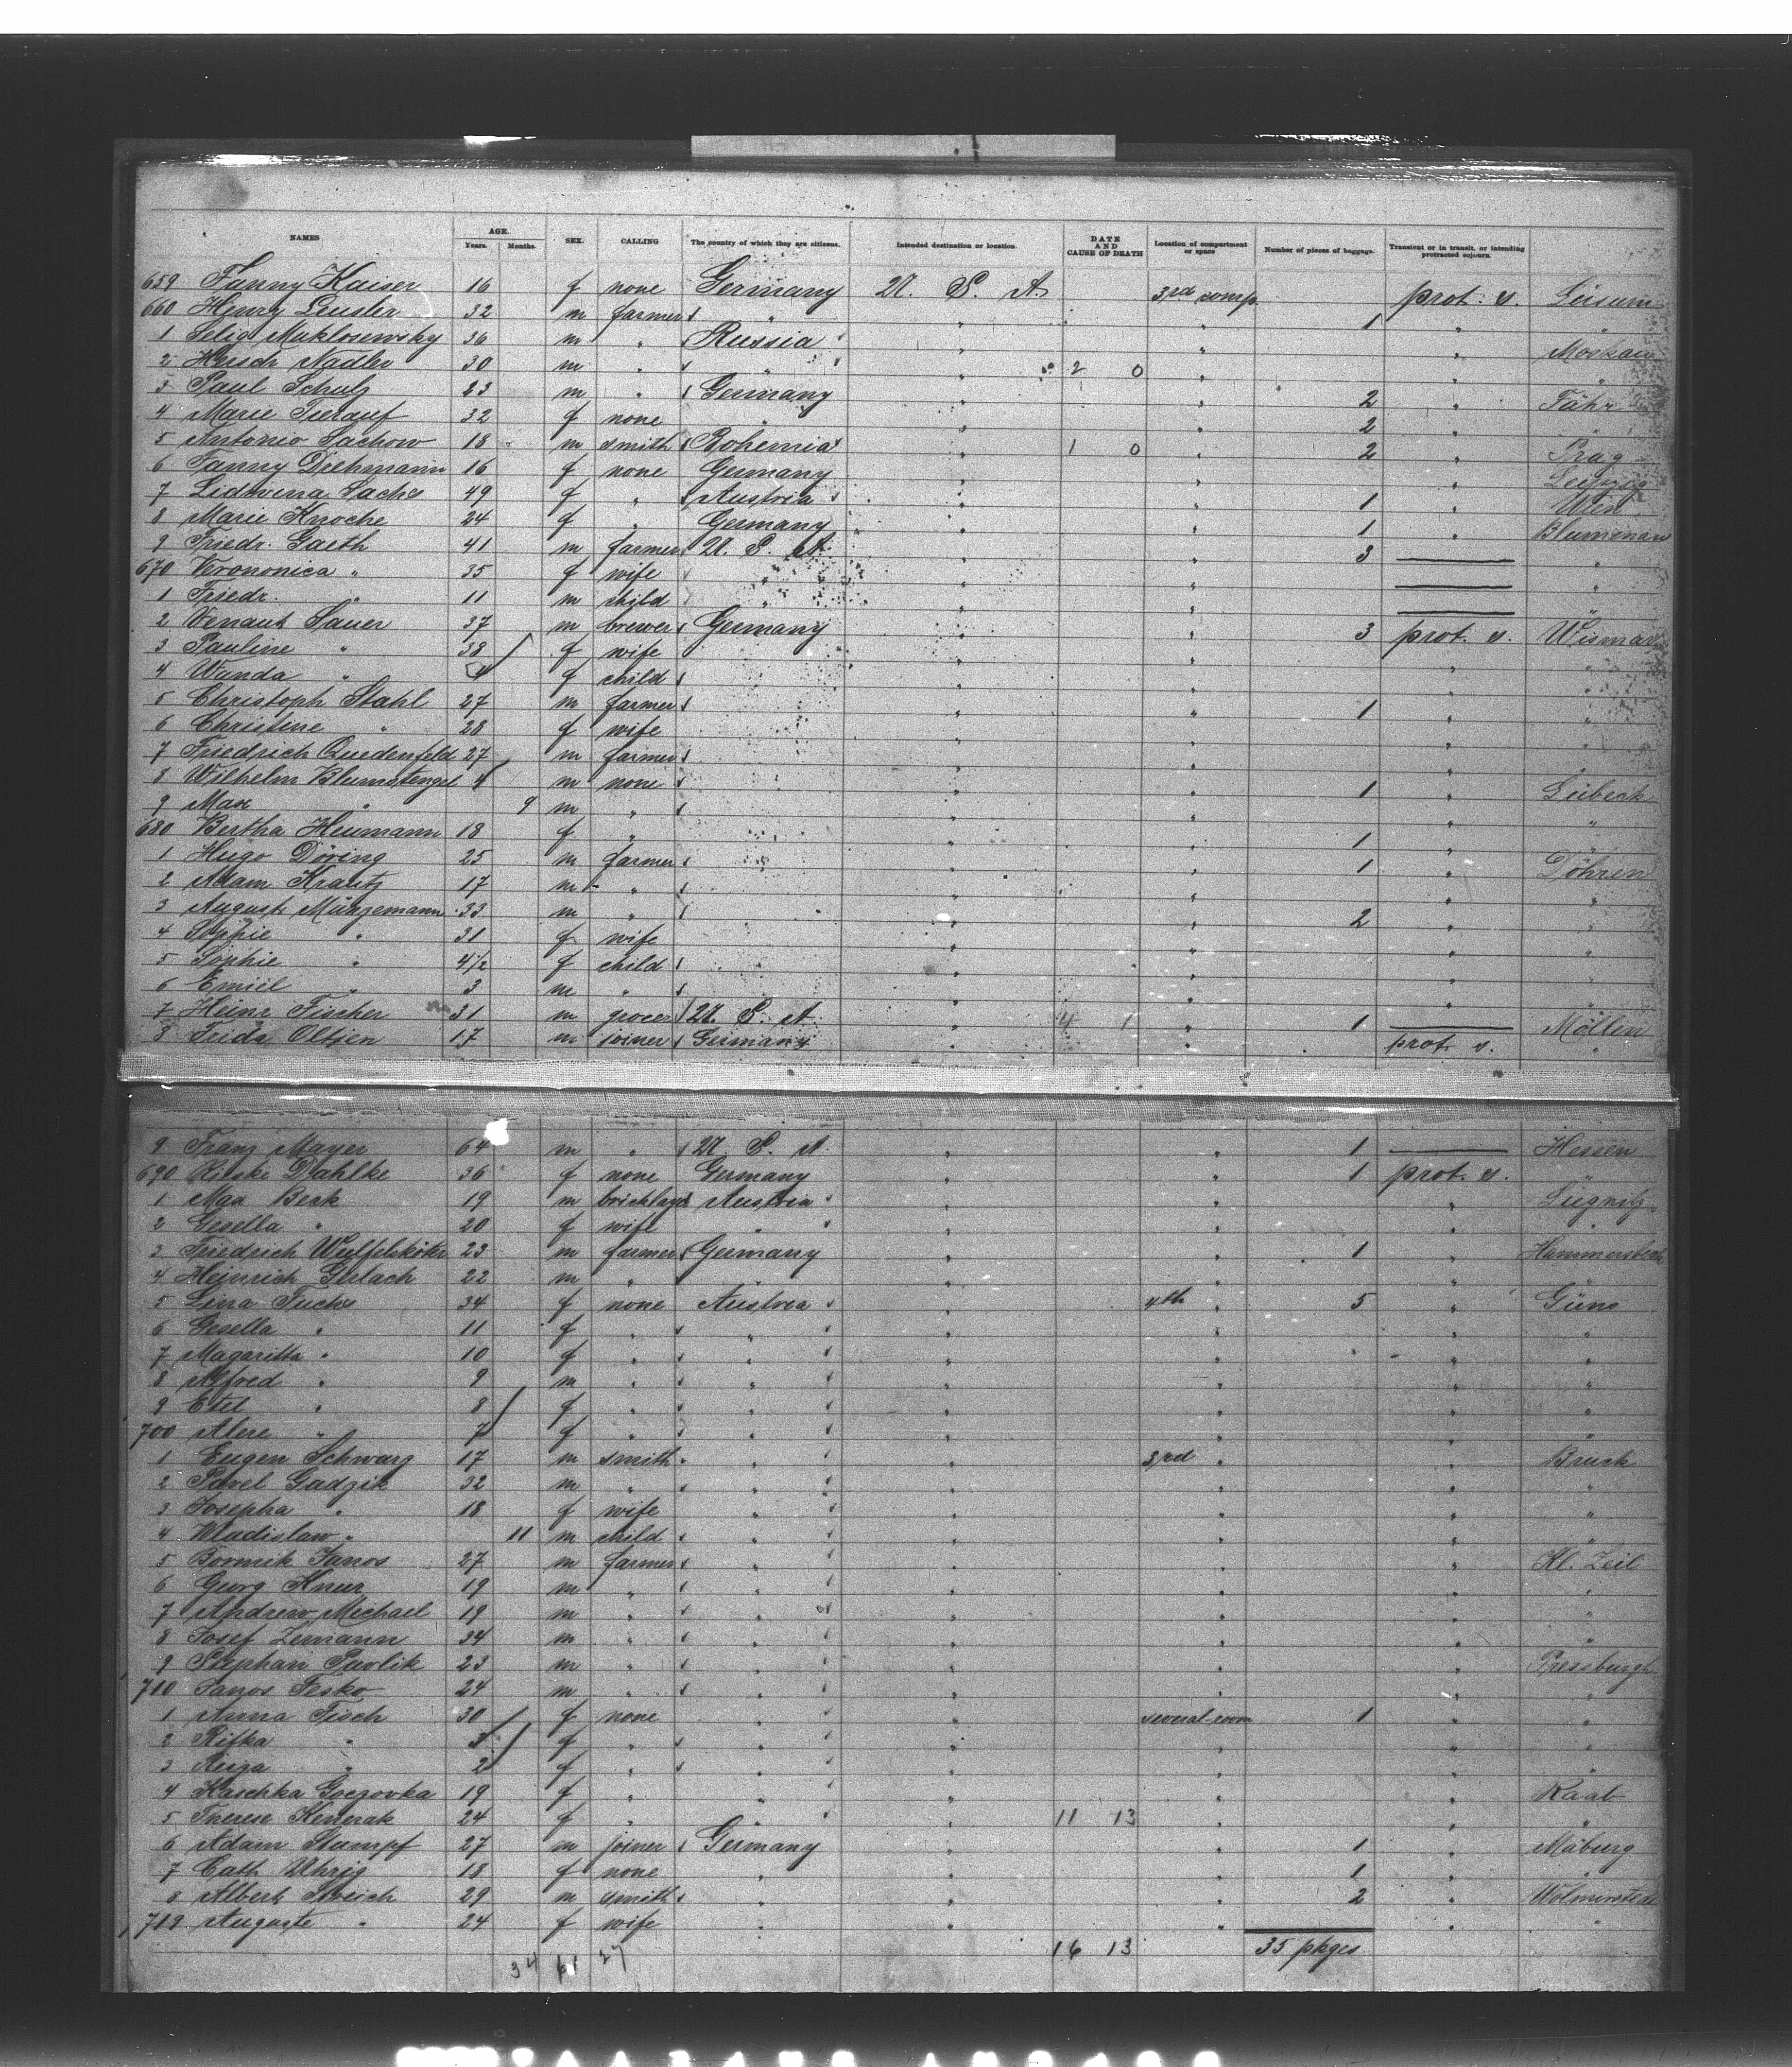 NAMES AGE. Years. Months. SEX. CALLING The country of which they are citizens. Intended destination or location. DATE AND CAUSE OF DEATH Location of compartment or space Number of pieces of baggage. Transient or in transit, or intending protracted sojourn.
659 Fanny Kaiser 16 f none Germany U. S. A. 3rd comp. prot. s.
660 Henry 32 m farmer " " " 1 " "
1 Selig 36 m " Russia " " " Moskau
2 Hersch Nadler 30 m " " " 2 0 " " "
3 Paul Schulz 23 m " Germany " " 2 "
4 Marie 32 f none " " " 2 " "
5 Antonio Sachow 18 m smith Bohemia " 1 0 " 2 " Prag
6 Fanny Diehmann 16 f none Germany " " " Leipzig
7 Lidwina Sachs 49 f " Austria " " 1 " Wien
8 Marie Knoche 24 f " Germany " " 1 " Blumenau
9 Friedr. Gaeth 41 m farmer U. S. A. " " 3 "
670 Verononica " 35 f wife " " " "
1 Friedr. " 11 m child " " " "
2 Sauer 37 m brewer Germany " " 3 prot. s. Wismar
3 Pauline " 38 f wife " " " "
4 Wanda " 4 f child " " " "
5 Christoph Stahl 27 m farmer " " 1 " "
6 Christine " 28 f wife " " " "
7 Friedrich Quedenfeld 27 m farmer " " " "
8 Wilhelm Blumstengel 4 m none " " 1 " Lübeck
9 Max " 9 m " " " " "
680 Bertha Heumann 18 f " " " 1 " "
1 Hugo Döring 25 m farmer " " 1 " Döhren
2 Adam Krautz 17 m " " " " "
3 August Münzemann 33 m " " " 2 " "
4 Sophie " 31 f wife " " " "
5 Sophie " 4½ f child " " " "
6 Emiel " 3 m " " " " "
7 Heinr. Fischer 31 m grocer U. S. A. " 4 1 " 1 Möllen
8 Frida Oltjen 17 m joiner Germany " " prot. s. "
9 Franz Mayer 64 m " U. S. A. " " 1 Hessen
690 Dahlke 36 f none Germany " " 1 prot. s.
1 Max Beck 19 m bricklayer Austria " " " Liegnitz
2 Gesella " 20 f wife " " " " "
3 Friedrich 23 m farmer Germany " " 1 "
4 Heinrich Gerlach 22 m " " " " "
5 Lina Fuchs 34 f none Austria " 4th " 5 " Güns
6 Gesella " 11 f " " " " " "
7 Magaritta " 10 f " " " " " "
8 Alfred " 9 m " " " " " "
9 Etel " 8 f " " " " " "
700 " 7 f " " " " " "
1 Eugen Schwarz 17 m smith " " 3rd " " Bruck
2 Pavel Gadzik 32 m " " " " " "
3 Josepha " 18 f wife " " " " "
4 Wladislaw " 11 m child " " " " "
5 Bormik Janos 27 m farmer " " " " Kl. Zeil
6 Georg Knur 19 m " " " " " "
7 Andrew Michael 19 m " " " " " "
8 Josef Zemann 34 m " " " " " "
9 Stephan Pavlik 23 m " " " " " Pressburgh
710 Janos Fesko 24 m " " " " " "
1 Anna Fisch 30 f none " " several-room 1 " "
2 Rifka " 3 f " " " " " "
3 " 2 f " " " " " "
4 Goczovka 19 f " " " " " Raab
5 Therese 24 f " " " 11 13 " " "
6 Adam Stumpf 27 m joiner Germany " " 1 " Maburg
7 Cath Uhrig 18 f none " " " 1 " "
8 Albert 29 m smith " " " 2 "
719 Auguste " 24 f wife " " " " "
34 61 27 16 13 35 pkges